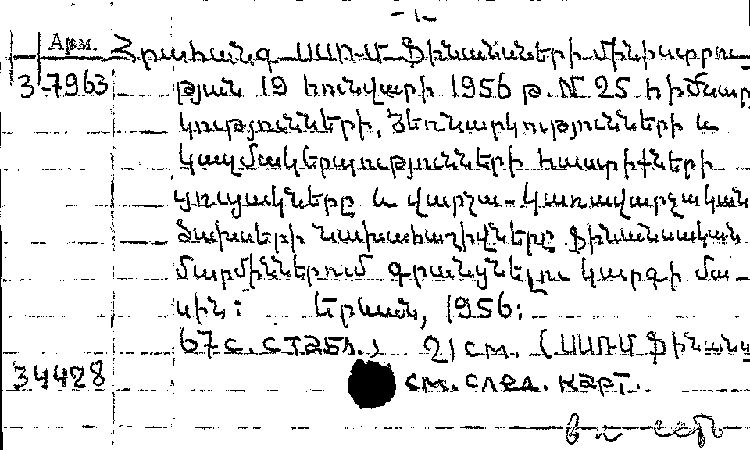 - 1 -
Арм. Հրահանգ ՍՍՌՄ Ֆինանսների մինիստրու-
3-7963 թյան 19 հունվարի 1956 թ. № 25 հիմնար
կությունների, ձեռնարկությունների և
կազմակերպությունների հաստիքների
ցուցակները և վարչա-կառավարչական
ծախսերի նախահաշիվները ֆինանսական
մարմիններում գրանցնելու կարգի մա-
սին: Երևան, 1956:
67 с. с табл.) 21 см. (ՍՍՌՄ Ֆինանս
34428 см. след. карт.
есть